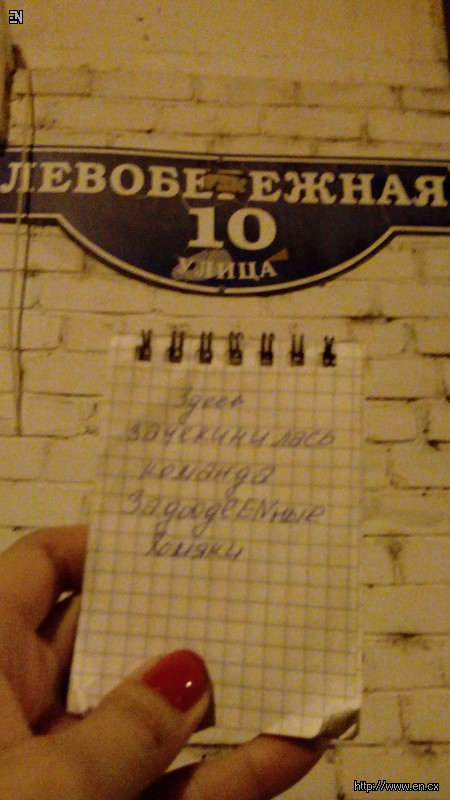 EN
ЛЕВОБЕРЕЖНАЯ
10
УЛИЦА
Здесь
зачекинилась
команда
ЗадоодеENные
хомяки
http://www.en.cx